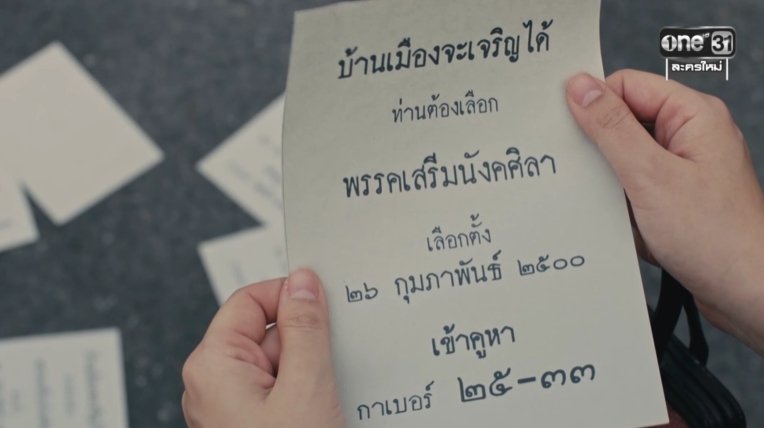 one HD 31
ละครใหม่
บ้านเมืองจะเจริญได้
ท่านต้องเลือก
พรรคเสรีมนังคศิลา
เลือกตั้ง
๒๖ กุมภาพันธ์ ๒๕๐๐
เข้าคูหา
กาเบอร์ ๒๕-๓๓